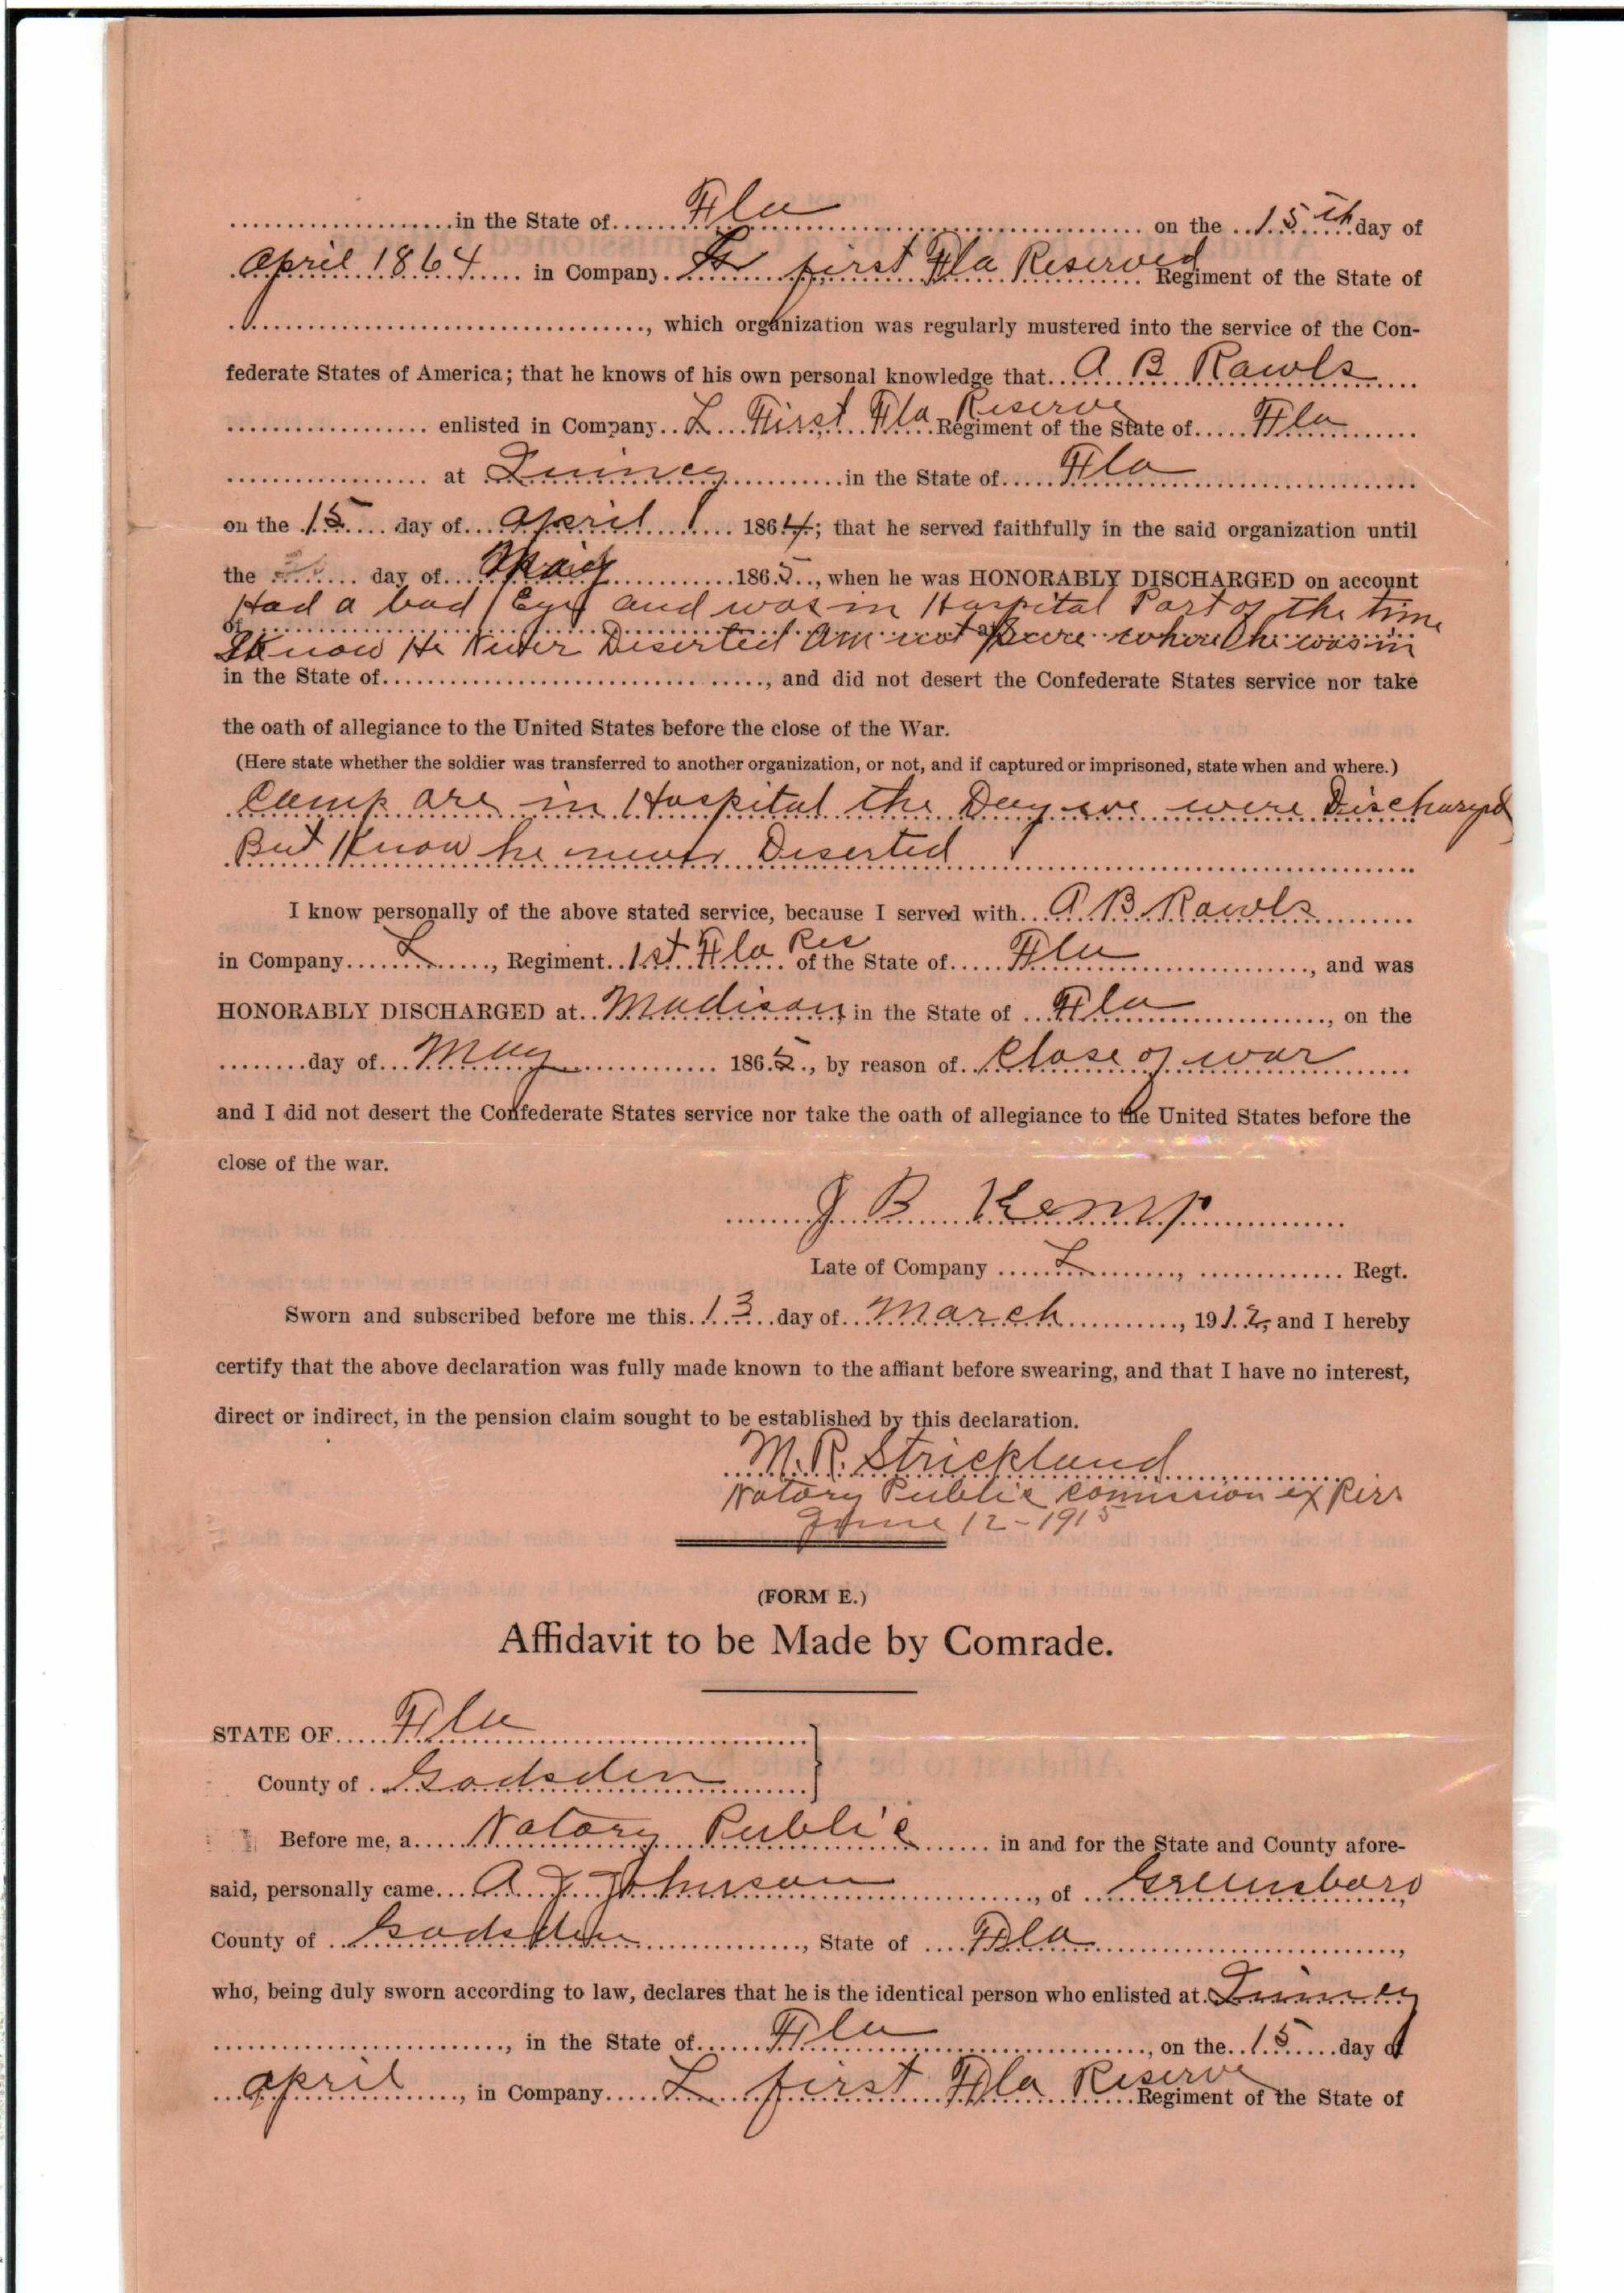 in the State of Fla on the 15th day of
April 1864 in Company L first Fla Reserved Regiment of the State of
, which organization was regularly mustered into the service of the Con-
federate States of America; that he knows of his own personal knowledge that A B Rawls
enlisted in Company L First Fla Reserve Regiment of the State of Fla
at Quincy in the State of Fla
on the 15 day of April 1864; that he served faithfully in the said organization until
the day of May 1865, when he was HONORABLY DISCHARGED on account
Had a bad Eye and was in Hospital Part of the time
of
I Know He Never Deserted Am not sure where he was in
in the State of , and did not desert the Confederate States service nor take
the oath of allegiance to the United States before the close of the War.
(Here state whether the soldier was transferred to another organization, or not, and if captured or imprisoned, state when and where.)
Camp are in Hospital the Day we were Discharged
But I Know he never Deserted
I know personally of the above stated service, because I served with A B Rawls
in Company L, Regiment 1st Fla Res of the State of Fla, and was
HONORABLY DISCHARGED at Madison, in the State of Fla, on the
day of May 1865, by reason of Close of war
and I did not desert the Confederate States service nor take the oath of allegiance to the United States before the
close of the war.
J B Kemp
Late of Company L, Regt.
Sworn and subscribed before me this 13 day of March, 1912, and I hereby
certify that the above declaration was fully made known to the affiant before swearing, and that I have no interest,
direct or indirect, in the pension claim sought to be established by this declaration.
M. R. Strickland
Notary Public Commission ex Pirs
June 12-1915
(FORM E.)
Affidavit to be Made by Comrade.
STATE OF Fla
County of Gadsden
Before me, a Notary Public in and for the State and County afore-
said, personally came A J Johnson, of Greensboro
County of Gadsden, State of Fla,
who, being duly sworn according to law, declares that he is the identical person who enlisted at Quincy
, in the State of Fla, on the 15 day of
april, in Company L first Fla Reserve Regiment of the State of